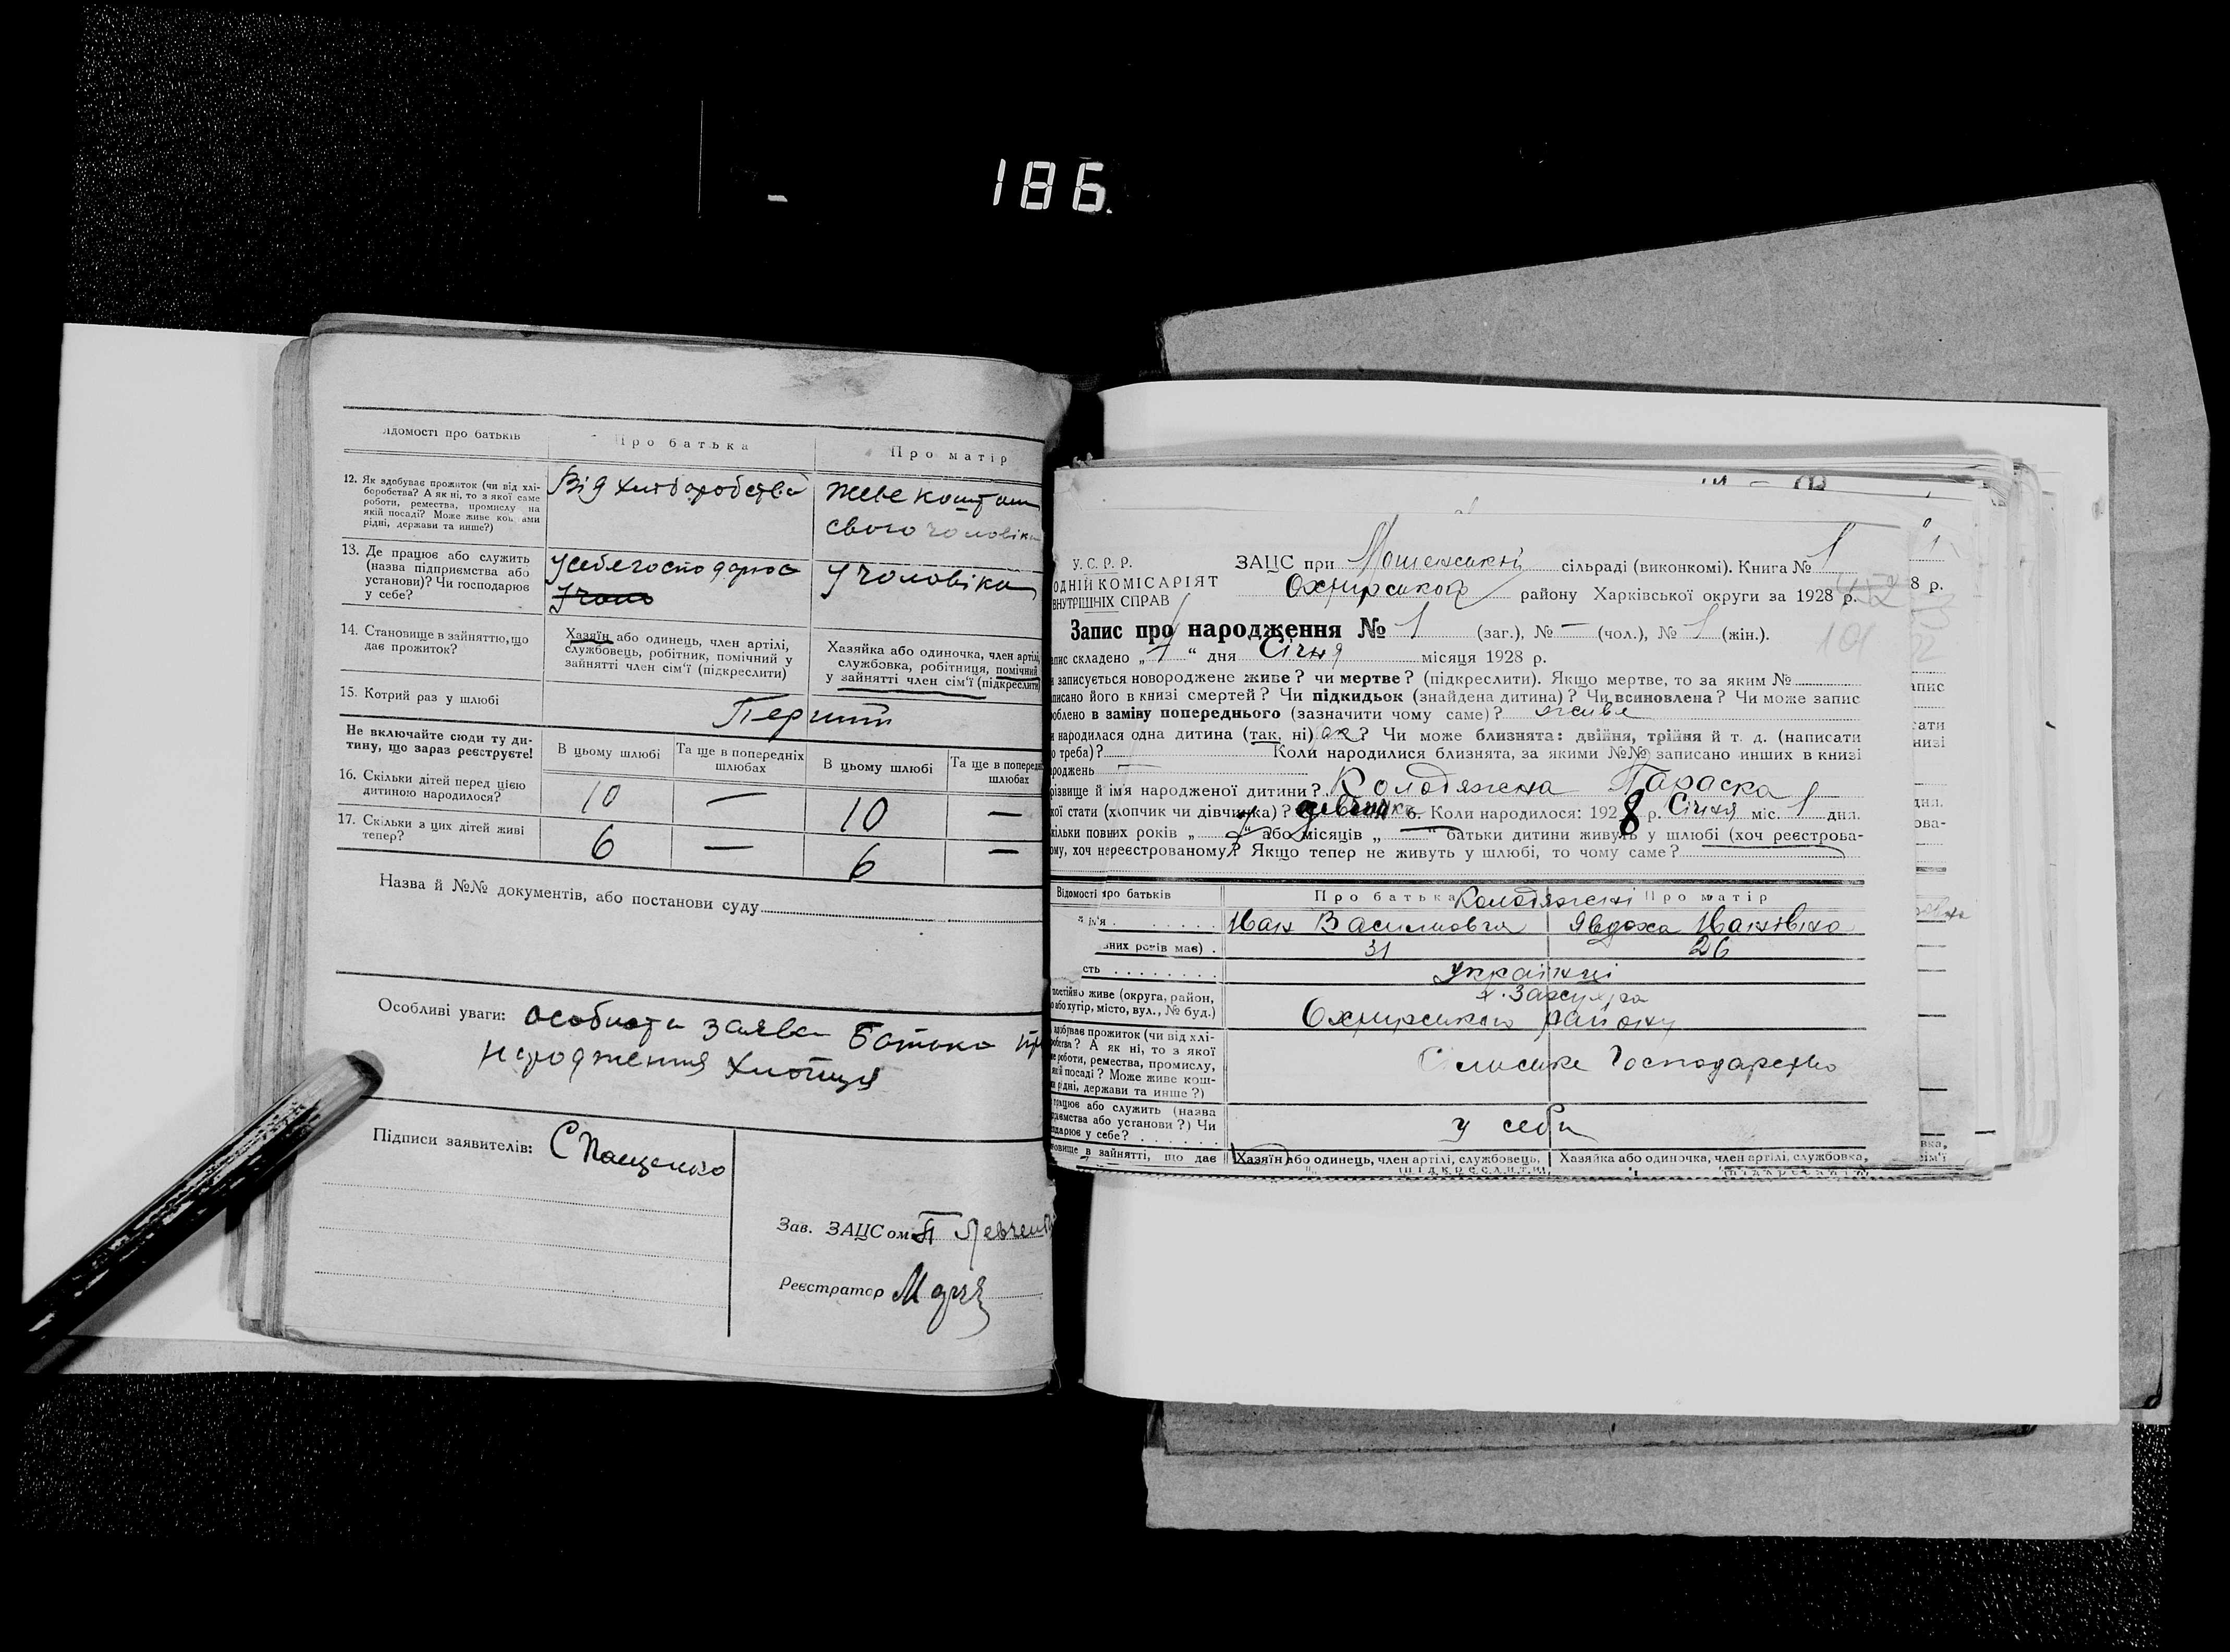 186.
ідомості про батьків
Про батька
Про матір
12. Як здобуває прожиток (чи від хлі-
боробства? А як ні, то з якої саме
роботи, ремества, промислу на
якій посаді? Може живе кош ами
рідні, держави та инше?)
Від хліборобства
живе коштом
свого чоловіка
13. Де працює або служить
(назва підприємства або
установи)? Чи господарює
у себе?
У чоловіка
14. Становище в зайняттю, що
дає прожиток?
Хазяїн або одинець, член артілі,
службовець, робітник, помічний у
зайнятті член сім'ї (підкреслити)
Хазяйка або одиночка, член артілі,
службовка, робітниця, помічний
у зайнятті член сім'ї (підкреслити)
15. Котрий раз у шлюбі
Перший
Не включайте сюди ту ди-
тину, що зараз реєструєте!
В цьому шлюбі
Та ще в попередніх
шлюбах
В цьому шлюбі
Та ще в попередн
шлюбах
16. Скільки дітей перед цією
дитиною народилося?
10 — 10 —
17. Скільки з цих дітей живі
тепер?
6 — 6 —
Назва й №№ документів, або постанови суду
Особливі уваги: особиста заява Батька пр
народження хлопця
Підписи заявителів: С Пащенко
Зав. ЗАЦСом П Левчен
Реєстратор
У. С. Р. Р.
ОДНІЙ КОМІСАРІЯТ
ВНУТРІШНІХ СПРАВ
ЗАЦС при сільраді (виконкомі). Книга № 1
Охтирського району Харківської округи за 1928 р.
8 р.
101
Запис про народження № 1 (заг.), № — (чол.), № 1 (жін.).
апис складено „ 1 “ дня Січня місяця 1928 р.
записується новороджене живе? чи мертве? (підкреслити). Якщо мертве, то за яким №
писано його в книзі смертей? Чи підкидьок (знайдена дитина)? Чи всиновлена? Чи може запис
облено в заміву попереднього (зазначити чому саме)? живе
народилася одна дитина (так, ні) ? Чи може близнята: двійня, трійня й т. д. (написати
о треба)? Коли народилися близнята, за якими №№ записано инших в книзі
роджень —
різвище й ім'я народженої дитини? Колодяжна Параска
кої стати (хлопчик чи дівчинка)? дівчинка 6. Коли народилося: 1928 р. Січня міс. 1 дня.
кільки повних років „ “ або місяців „ — “ батьки дитини живуть у шлюбі (хоч реєстрова-
ому, хоч нереєстрованому)? Якщо тепер не живуть у шлюбі, то чому саме?
Відомості про батьків
Про батька Колодяжні Про матір
ім'я
Іван Васильович
Явдоха Іванівна
вних років має)
31
26
сть
Українці
постійно живе (округа, район,
або хутір, місто, вул., № буд.)
Охтирського району
здобуває прожиток (чи від хлі-
робства? А як ні, то з якої
роботи, ремества, промислу,
якій посаді? Може живе кош-
рідні, держави та инше?)
Сільське Господарство
працює або служить (назва
приємства або установи?) Чи
подарює у себе?
у себе
новище в зайнятті, що дає
Хазяїн або одинець, член артілі, службовець,
Хазяйка або одиночка, член артілі, службовка,